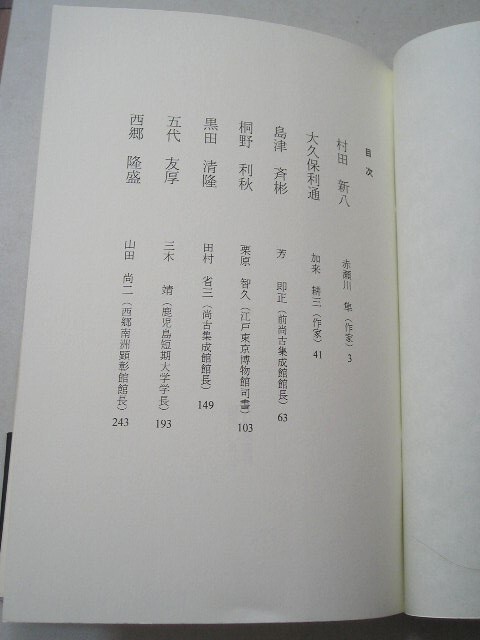 目次
村田 新八 赤瀬川 隼（作家）3
大久保利通 加来 耕三（作家）41
島津 斉彬 芳 即正（前尚古集成館館長）63
桐野 利秋 栗原 智久（江戸東京博物館司書）103
黒田 清隆 田村 省三（尚古集成館館長）149
五代 友厚 三木 靖（鹿児島短期大学学長）193
西郷 隆盛 山田 尚二（西郷南洲顕彰館館長）243